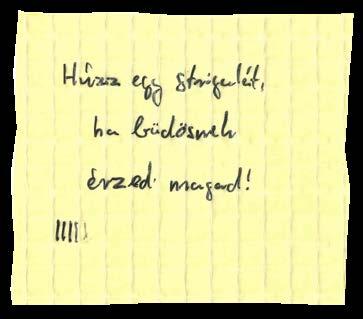 Húzz egy strigulát,
ha büdösnek
érzed magad!
IIIII